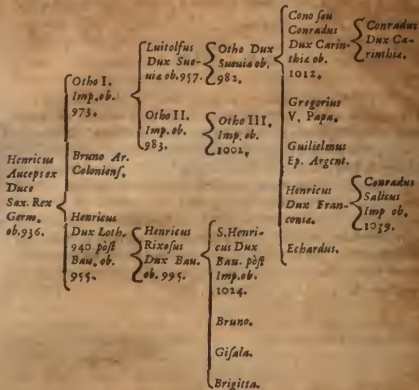 Henricus
Auceps ex
Duce
Sax. Rex
Germ.
ob.936.
Otho I.
Imp. ob.
973.
Bruno Ar.
Coloniens.
Henricus
Dux Loth.
940 pòst
Bau. ob.
955.
Luitolfus
Dux Sue-
uia ob.957.
Otho II.
Imp. ob.
983.
Henricus
Rixosus
Dux Bau.
ob. 995.
Otho Dux
Sueuia ob.
982.
Otho III.
Imp. ob.
1002.
S. Henri-
cus Dux
Bau. pòst
Imp. ob.
1024.
Bruno.
Gisala.
Brigitta.
Cono seu
Conradus
Dux Carin-
thia ob.
1012.
Gregorius
V. Papa.
Guilielmus
Ep. Argent.
Henricus
Dux Fran-
conia.
Echardus.
Conradus
Dux Ca-
rinthia.
Conradus
Salicus
Imp ob.
1039.